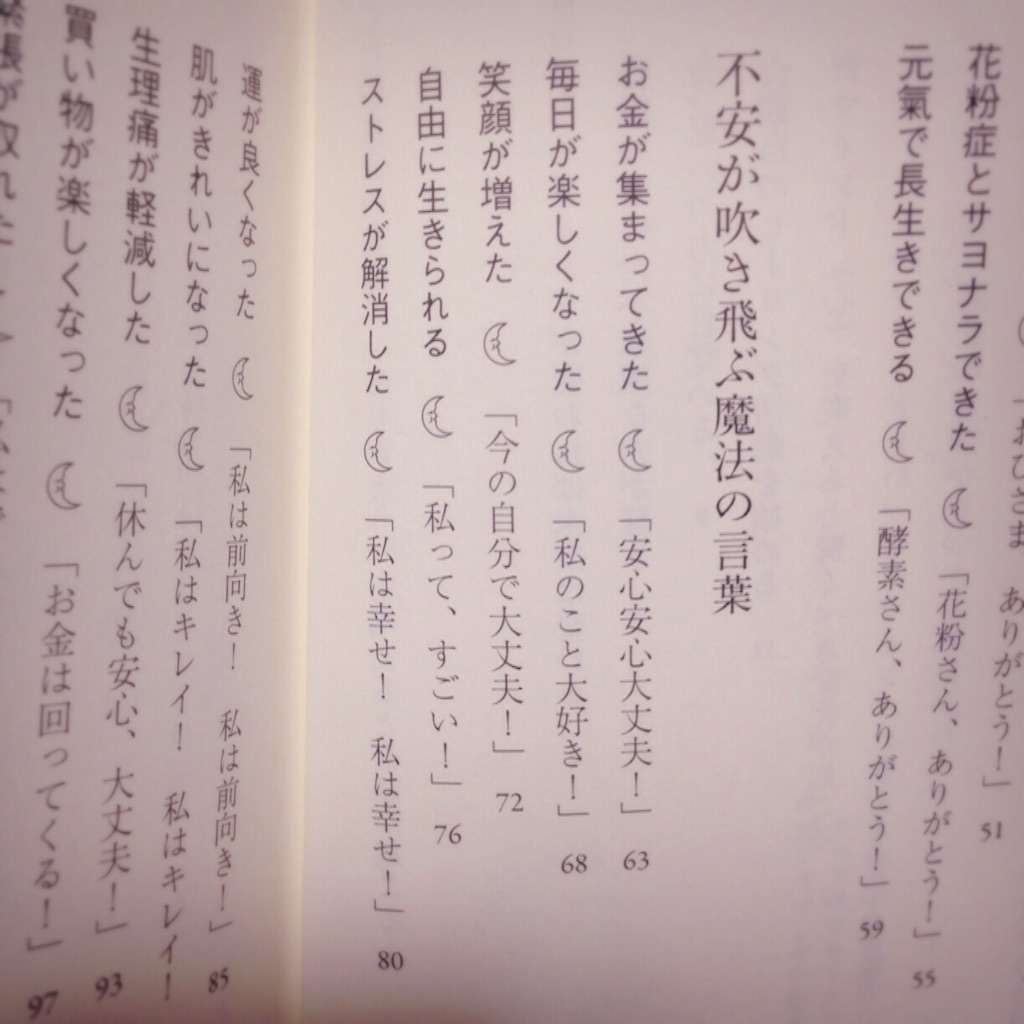 「おひさま ありがとう！」 51
花粉症とサヨナラできた 「花粉さん、ありがとう！」 55
元氣で長生きできる 「酵素さん、ありがとう！」 59
不安が吹き飛ぶ魔法の言葉
お金が集まってきた 「安心安心大丈夫！」 63
毎日が楽しくなった 「私のこと大好き！」 68
笑顔が増えた 「今の自分で大丈夫！」 72
自由に生きられる 「私って、すごい！」 76
ストレスが解消した 「私は幸せ！ 私は幸せ！」 80
運が良くなった 「私は前向き！ 私は前向き！」 85
肌がきれいになった 「私はキレイ！ 私はキレイ！
生理痛が軽減した 「休んでも安心、大丈夫！」 93
買い物が楽しくなった 「お金は回ってくる！」 97
緊張が取れた